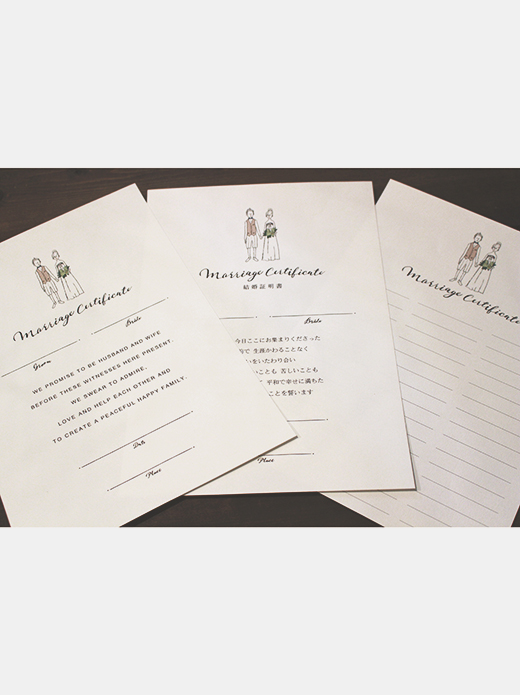 Marriage Certificate
Groom
Bride
WE PROMISE TO BE HUSBAND AND WIFE
BEFORE THESE WITNESSES HERE PRESENT.
WE SWEAR TO ADMIRE.
LOVE AND HELP EACH OTHER AND
TO CREATE A PEACEFUL HAPPY FAMILY.
Date
Place
Marriage Certificate
結婚証明書
Bride
今日ここにお集まりくださった
で 生涯かわることなく
いをいたわり合い
いことも 苦しいことも
平和で幸せに満ちた
ことを誓います
Place
Marriage Certificate